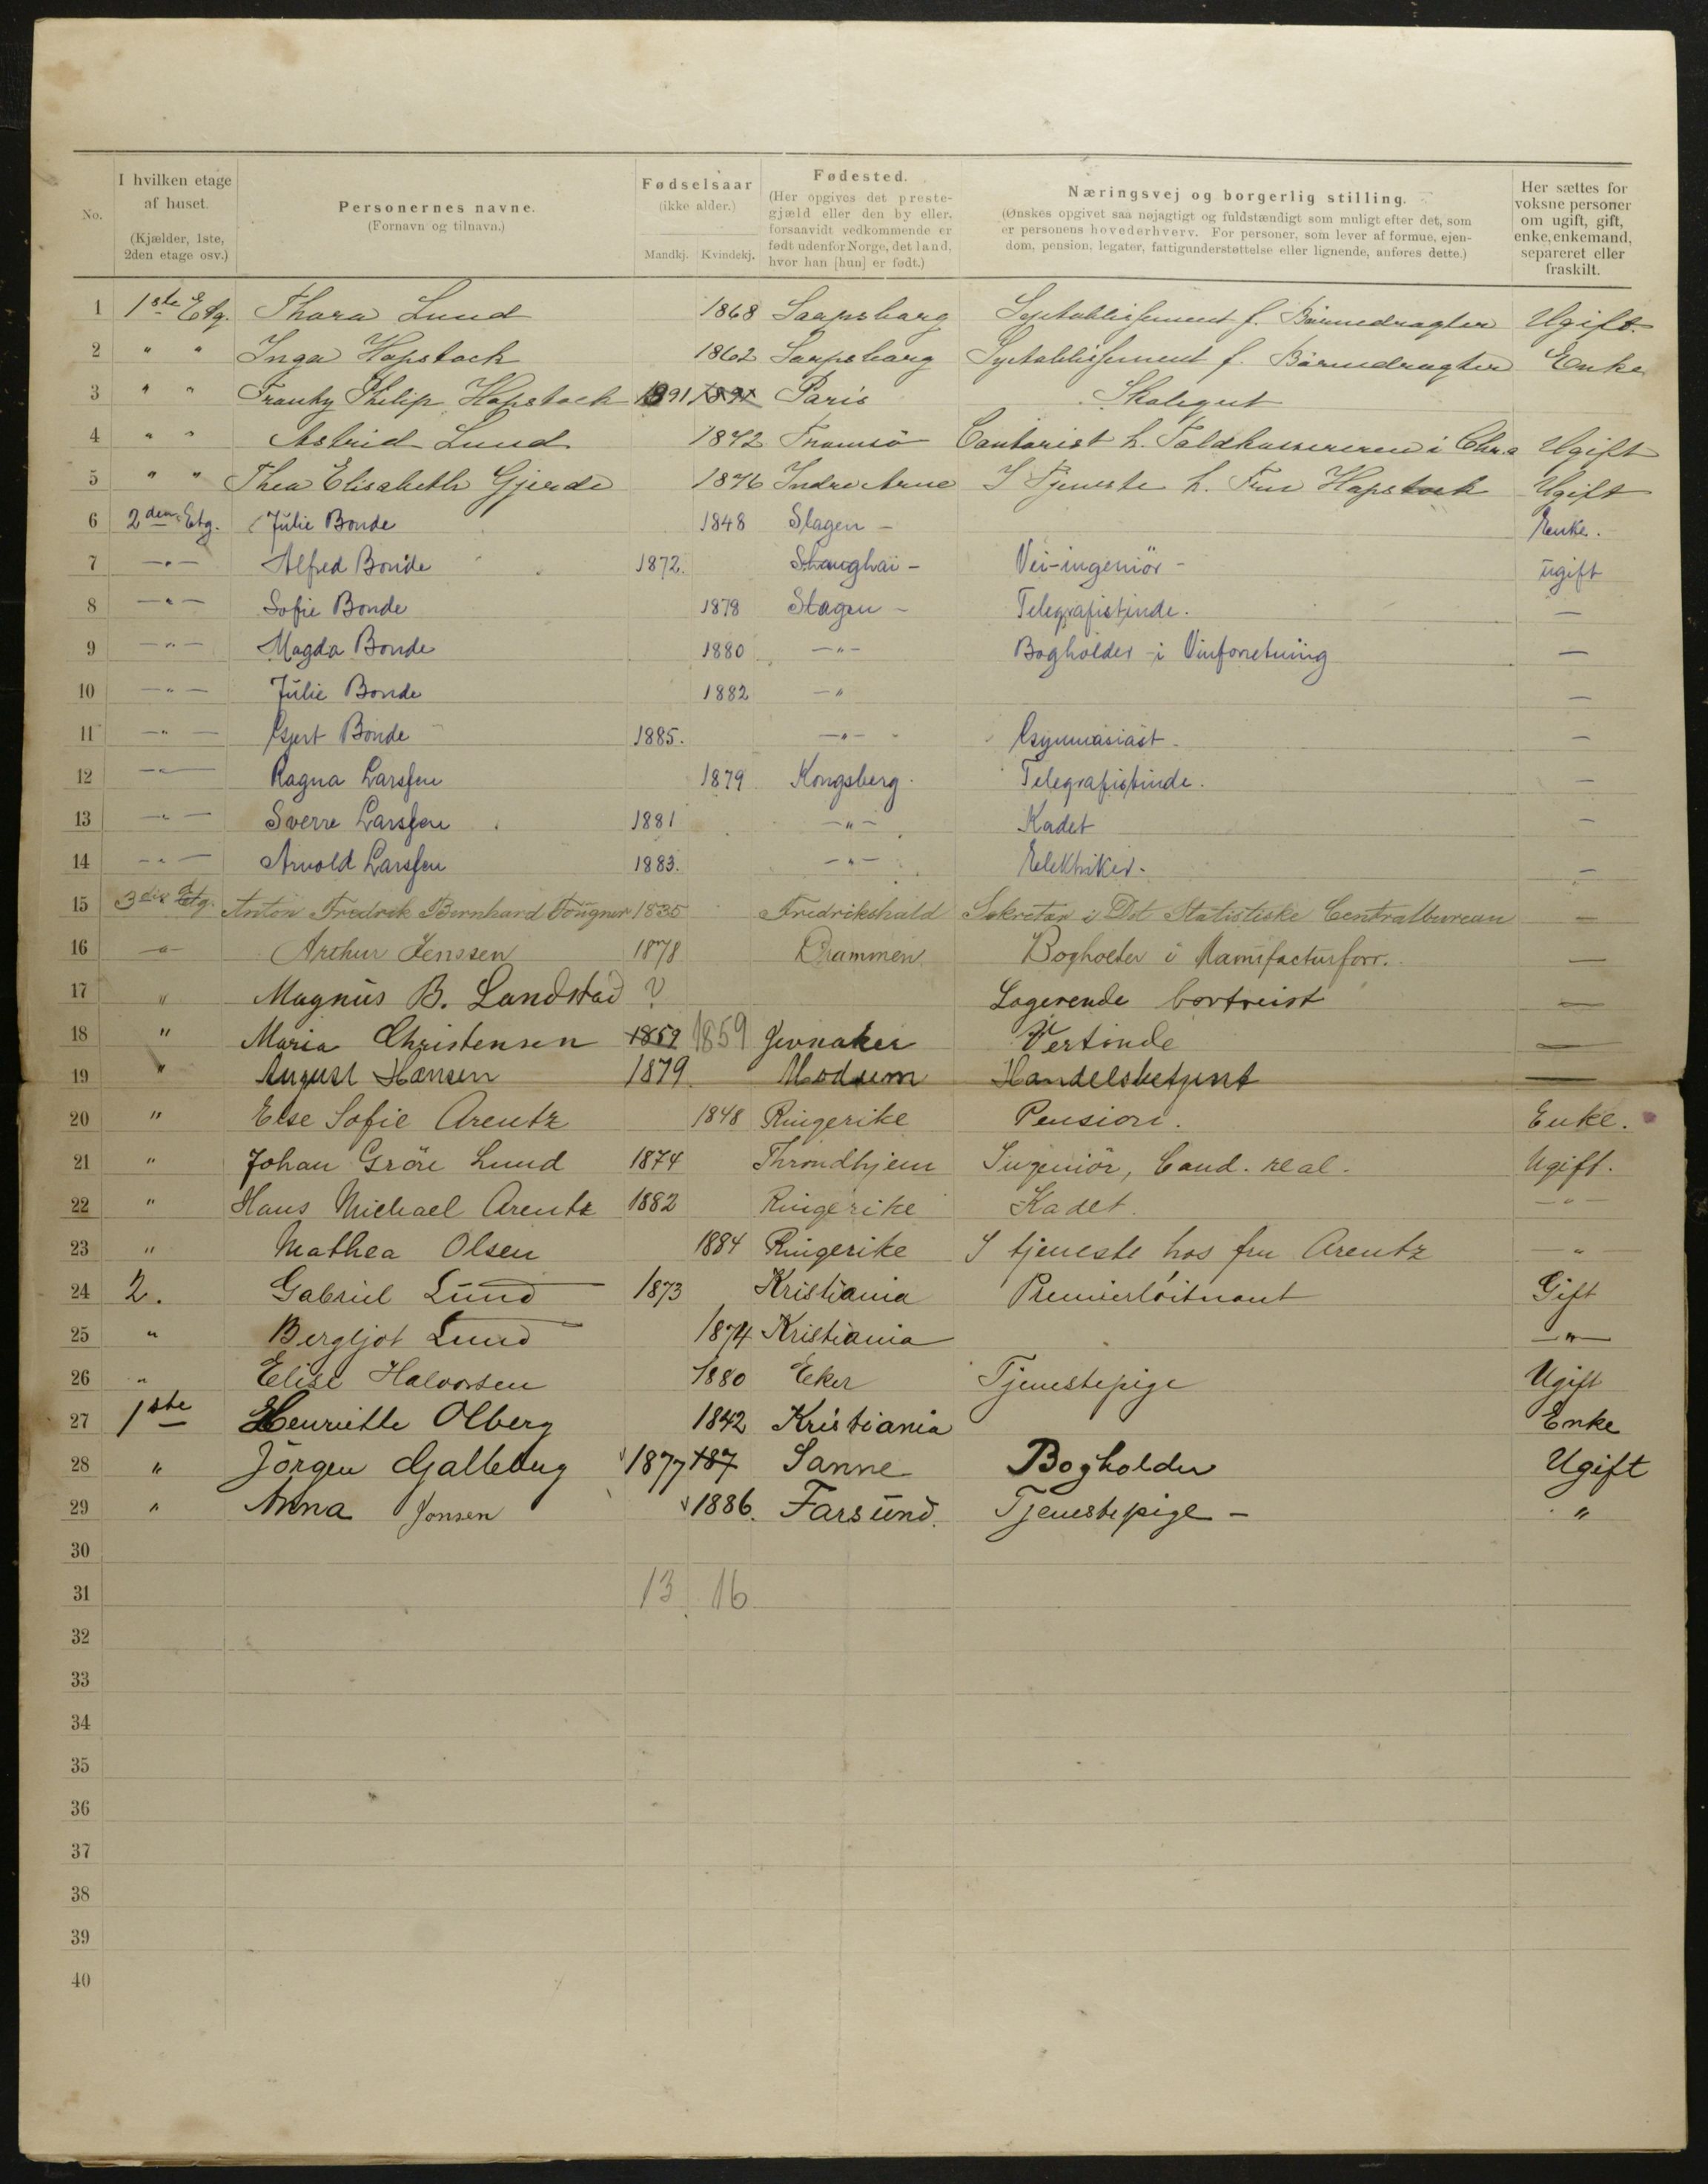 No.
I hvilken etage
af huset.
(Kjælder, 1ste,
2den etage osv.)
Personernes navne.
(Fornavn og tilnavn.)
Fødselsaar
(ikke alder.)
Mandkj. Kvindekj.
Fødested.
(Her opgives det preste-
gjæld eller den by eller,
forsaavidt vedkommende er
født udenfor Norge, det land,
hvor han [hun] er født.)
Næringsvej og borgerlig stilling.
(Ønskes opgivet saa nøjagtigt og fuldstændigt som muligt efter det, som
er personens hovederhverv. For personer, som lever af formue, ejen-
dom, pension, legater, fattigunderstøttelse eller lignende, anføres dette.)
Her sættes for
voksne personer
om ugift, gift,
enke, enkemand,
separeret eller
fraskilt.
1 1ste Etg. Thora Lund 1868 Saapsborg Syetablissement f. Barnedragter Ugift.
2 " " Inga Hapstock 1862 Saapsborg Syetablissement f. Barnedragter Enke
3 " " Philip Hapstock 1891 1891 Paris Skolegut
4 " " Astrid Lund 1872 Tromsö Contorist h. i Chr.a Ugift
5 " " Thea Elisabeth Gjerde 1876 Indre Arne I Tjeneste h. Fru Hapstock Ugift
6 2den Etg. Julie Bonde 1848 Slagen - Enke.
7 -"- Alfred Bonde 1872. Shanghai - Vei-ingeniör - ugift
8 -"- Sofie Bonde 1878 Slagen - Telegrafistinde. -
9 -"- Magda Bonde 1880 -"- Bogholder i Vinforretning -
10 -"- Julie Bonde 1882 -" -
11 -"- Gjert Bonde 1885. -"- Gymnasiast. -
12 -"- Ragna Larssen 1879 Kongsberg. Telegrafistinde. -
13 -"- Sverre Larssen 1881 -"- Kadet -
14 -"- Arnold Larssen 1883. -"- Elektriker. -
15 3die Etg. Anton Fredrik Bernhard Fougner 1835 Fredrikshald Sekretær i Det Statistiske Centralbureau -
16 -"- Arthur Jenssen 1878 Drammen. Bogholder i Manufacturforr. -
17 " Magnus B. Landstad ? Logerende bortreist -
18 " Maria Christensen 1859 1859 Jevnaker Vertinde -
19 " August Hansen 1879. Modum Handelsbetjent -
20 " Else Sofie Arentz 1848 Ringerike Pension. Enke.
21 " Johan Gröre Lund 1874 Throndhjem Ingeniör, Cand. real. Ugift.
22 " Hans Michael Arentz 1882 Ringerike Kadet. -"-
23 " Mathea Olsen 1884 Ringerike I tjeneste hos fru Arentz -"
24 2. Gabriel Lund 1873 Kristiania Premierlöitnant Gift
25 " Bergljot Lund 1874 Kristiania -"-
26 " Elise Halvorsen 1880 Eker Tjenestepige Ugift
27 1ste Henriette Olberg 1842 Kristiania Enke
28 " Jörgen 1877 187 Sanne Bogholder Ugift
29 " Anna Jonsen 1886. Farsund. Tjenestepige - "
30
31 13 16
32
33
34
35
36
37
38
39
40